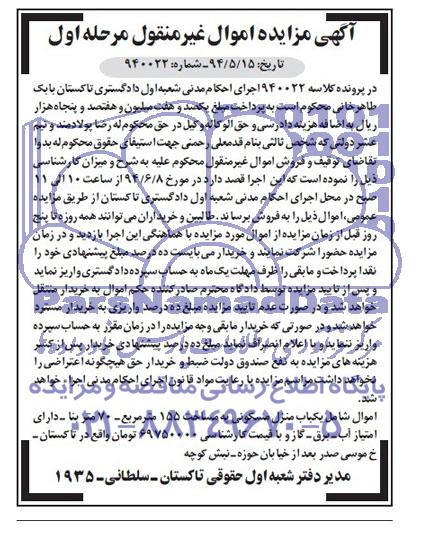 آگهی مزایده اموال غیرمنقول مرحله اول
تاریخ: ۹۴/۵/۱۵ـ شماره: ۹۴۰۰۲۲
در پرونده کلاسه ۹۴۰۰۲۲ اجرای احکام مدنی شعبه اول دادگستری تاکستان بابک
طاهرخانی محکوم است به پرداخت مبلغ یکصد و هفت میلیون و هفتصد و پنجاه هزار
ریال به اضافه هزینه دادرسی و حق الوکاله وکیل در حق محکوم له رضا پولادمند و نیم
عشر دولتی که شخص ثالثی بنام قدمعلی رحمنی جهت استیفای حقوق محکوم له بدوا
تقاضای توقیف و فروش اموال غیرمنقول محکوم علیه به شرح و میزان کارشناسی
ذیل را نموده است که این اجرا قصد دارد در مورخ ۹۴/۶/۸ از ساعت ۱۰ الی ۱۱
صبح در محل اجرای احکام مدنی شعبه اول دادگستری تاکستان از طریق مزایده
عمومی، اموال ذیل را به فروش برساند. طالبین و خریداران می توانند همه روزه تا پنج
روز قبل از زمان مزایده از اموال مورد مزایده با هماهنگی این اجرا بازدید و در زمان
مزایده حضورا شرکت نمایند و خریدار می بایست ده درصد مبلغ پیشنهادی خود را
نقدا پرداخت و مابقی را ظرف مهلت یک ماه به حساب سپرده دادگستری واریز نماید
و پس از تایید مزایده توسط دادگاه محترم صادرکننده حکم اموال به خریدار منتقل
خواهد شد و در صورت عدم تایید مزایده مبلغ ده درصد واریزی به خریدار مسترد
خواهد شد و در صورتی که خریدار مابقی وجه مزایده را در زمان مقرر به حساب سپرده
واریز ننماید و یا اعلام انصراف نماید مبلغ ده درصد پیشنهادی خریدار پس از کسر
هزینه های مزایده به نفع صندوق دولت ضبط و خریدار حق هیچگونه اعتراضی را
نخواهد داشت مراسم مزایده با رعایت مواد قانون اجرای احکام مدنی اجرا خواهد
شد.
اموال شامل یکباب منزل مسکونی به مساحت ۱۵۵ مترمربع ـ ۷۰ متر بنا ـ دارای
امتیاز آب ـ برق ـ گاز و با قیمت کارشناسی ۶۹۷۵۰۰۰۰ تومان واقع در تاکستان ـ
خ موسی صدر بعد از خیابان حوزه ـ نبش کوچه
مدیر دفتر شعبه اول حقوقی تاکستان ـ سلطانی ـ ۱۹۳۵
ParsNamadData
پایگاه اطلاع رسانی مناقصه و مزایده
۰۲۱-۸۸۳۴۹۶۷۰-۵